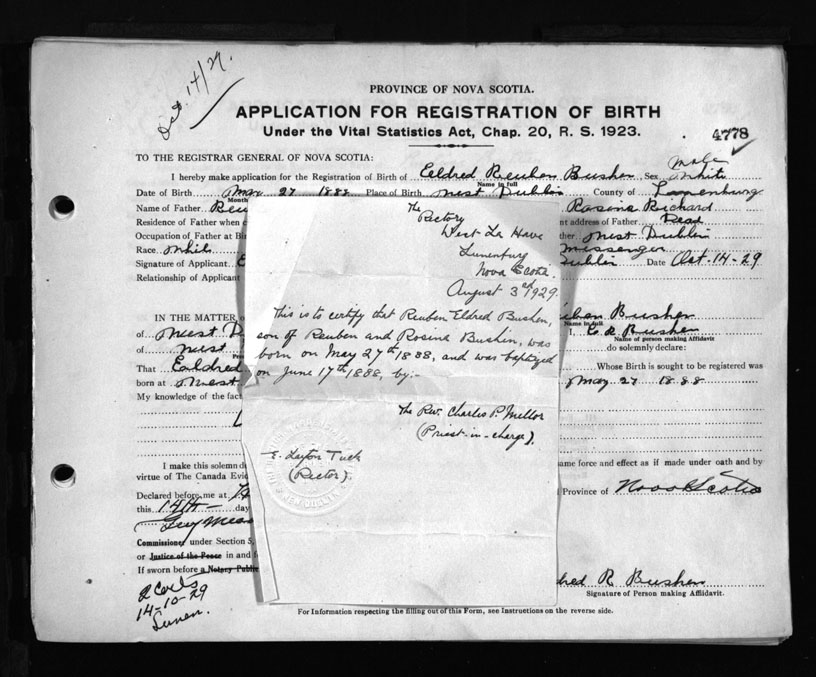 Oct. 14/29.
PROVINCE OF NOVA SCOTIA.
APPLICATION FOR REGISTRATION OF BIRTH
Under the Vital Statistics Act, Chap. 20, R. S. 1923.
4778
TO THE REGISTRAR GENERAL OF NOVA SCOTIA:
I hereby make application for the Registration of Birth of Eeldred Reuben Bushen Sex male white
Name in full
Date of Birth May 27 1888 Place of Birth West Dublin County of Lunenburg
Month
Name of Father Reu Rosina Richard
Residence of Father when address of Father Dead
Occupation of Father at Bi West Dublin
Race White Messenger
Signature of Applicant E Dublin Date Oct. 14-29
Relationship of Applicant
The
Rectory
West La Have
Lunenburg
Nova Scotia.
August 3rd 1929.
This is to certify that Reuben Eldred Bushen,
son of Reuben and Rosina Bushin, was
born on May 27th 1888, and was baptized
on June 17th 1888, by:-
The Rev. Charles P. Mellor
(Priest-in-charge).
E. Layton Tuck
(Rector)
IN THE MATTER o Bushen
Name in full
of West D I, E. R. Bushen
Name of person making Affidavit
of West do solemnly declare:
That Ealdred Whose Birth is sought to be registered was
born at West May 27 1888
My knowledge of the fact
I make this solemn d ame force and effect as if made under oath and by
virtue of The Canada Evid
Declared before me at Province of Nova Scotia
this 14th day
Commissioner under Section 5,
or Justice of the Peace in and f
If sworn before a Notary Public
dred R Bushen
Signature of Person making Affidavit.
2 Certs
14-10-29
Lunen.
For Information respecting the filling out of this Form, see Instructions on the reverse side.